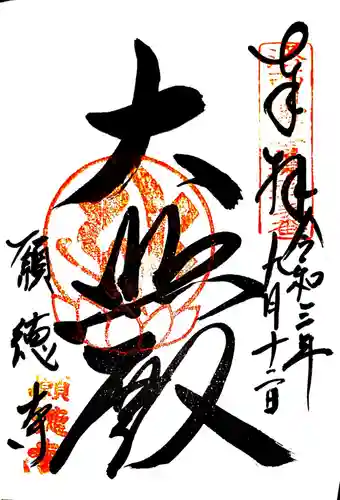 奉拝
令和三年
九月十二日
大悲殿
願徳寺
願徳寺